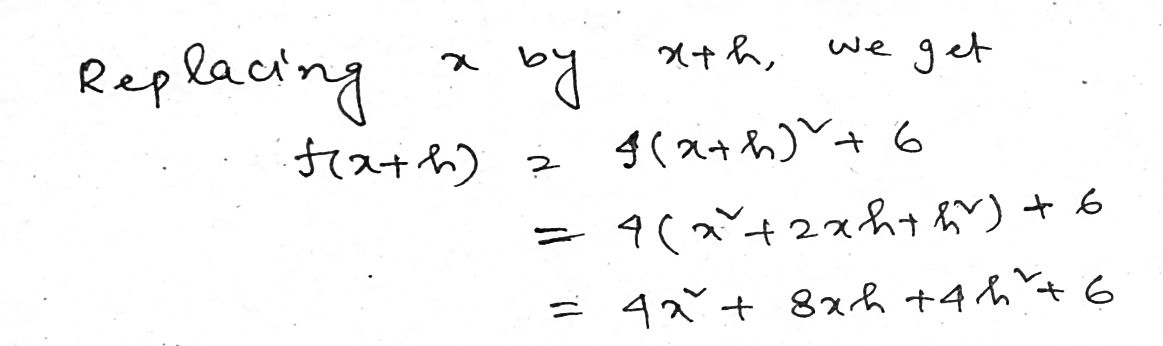 Replacing x by x+h, we get
f(x+h) = 4(x+h)² + 6
= 4(x² + 2xh + h²) + 6
= 4x² + 8xh + 4h² + 6